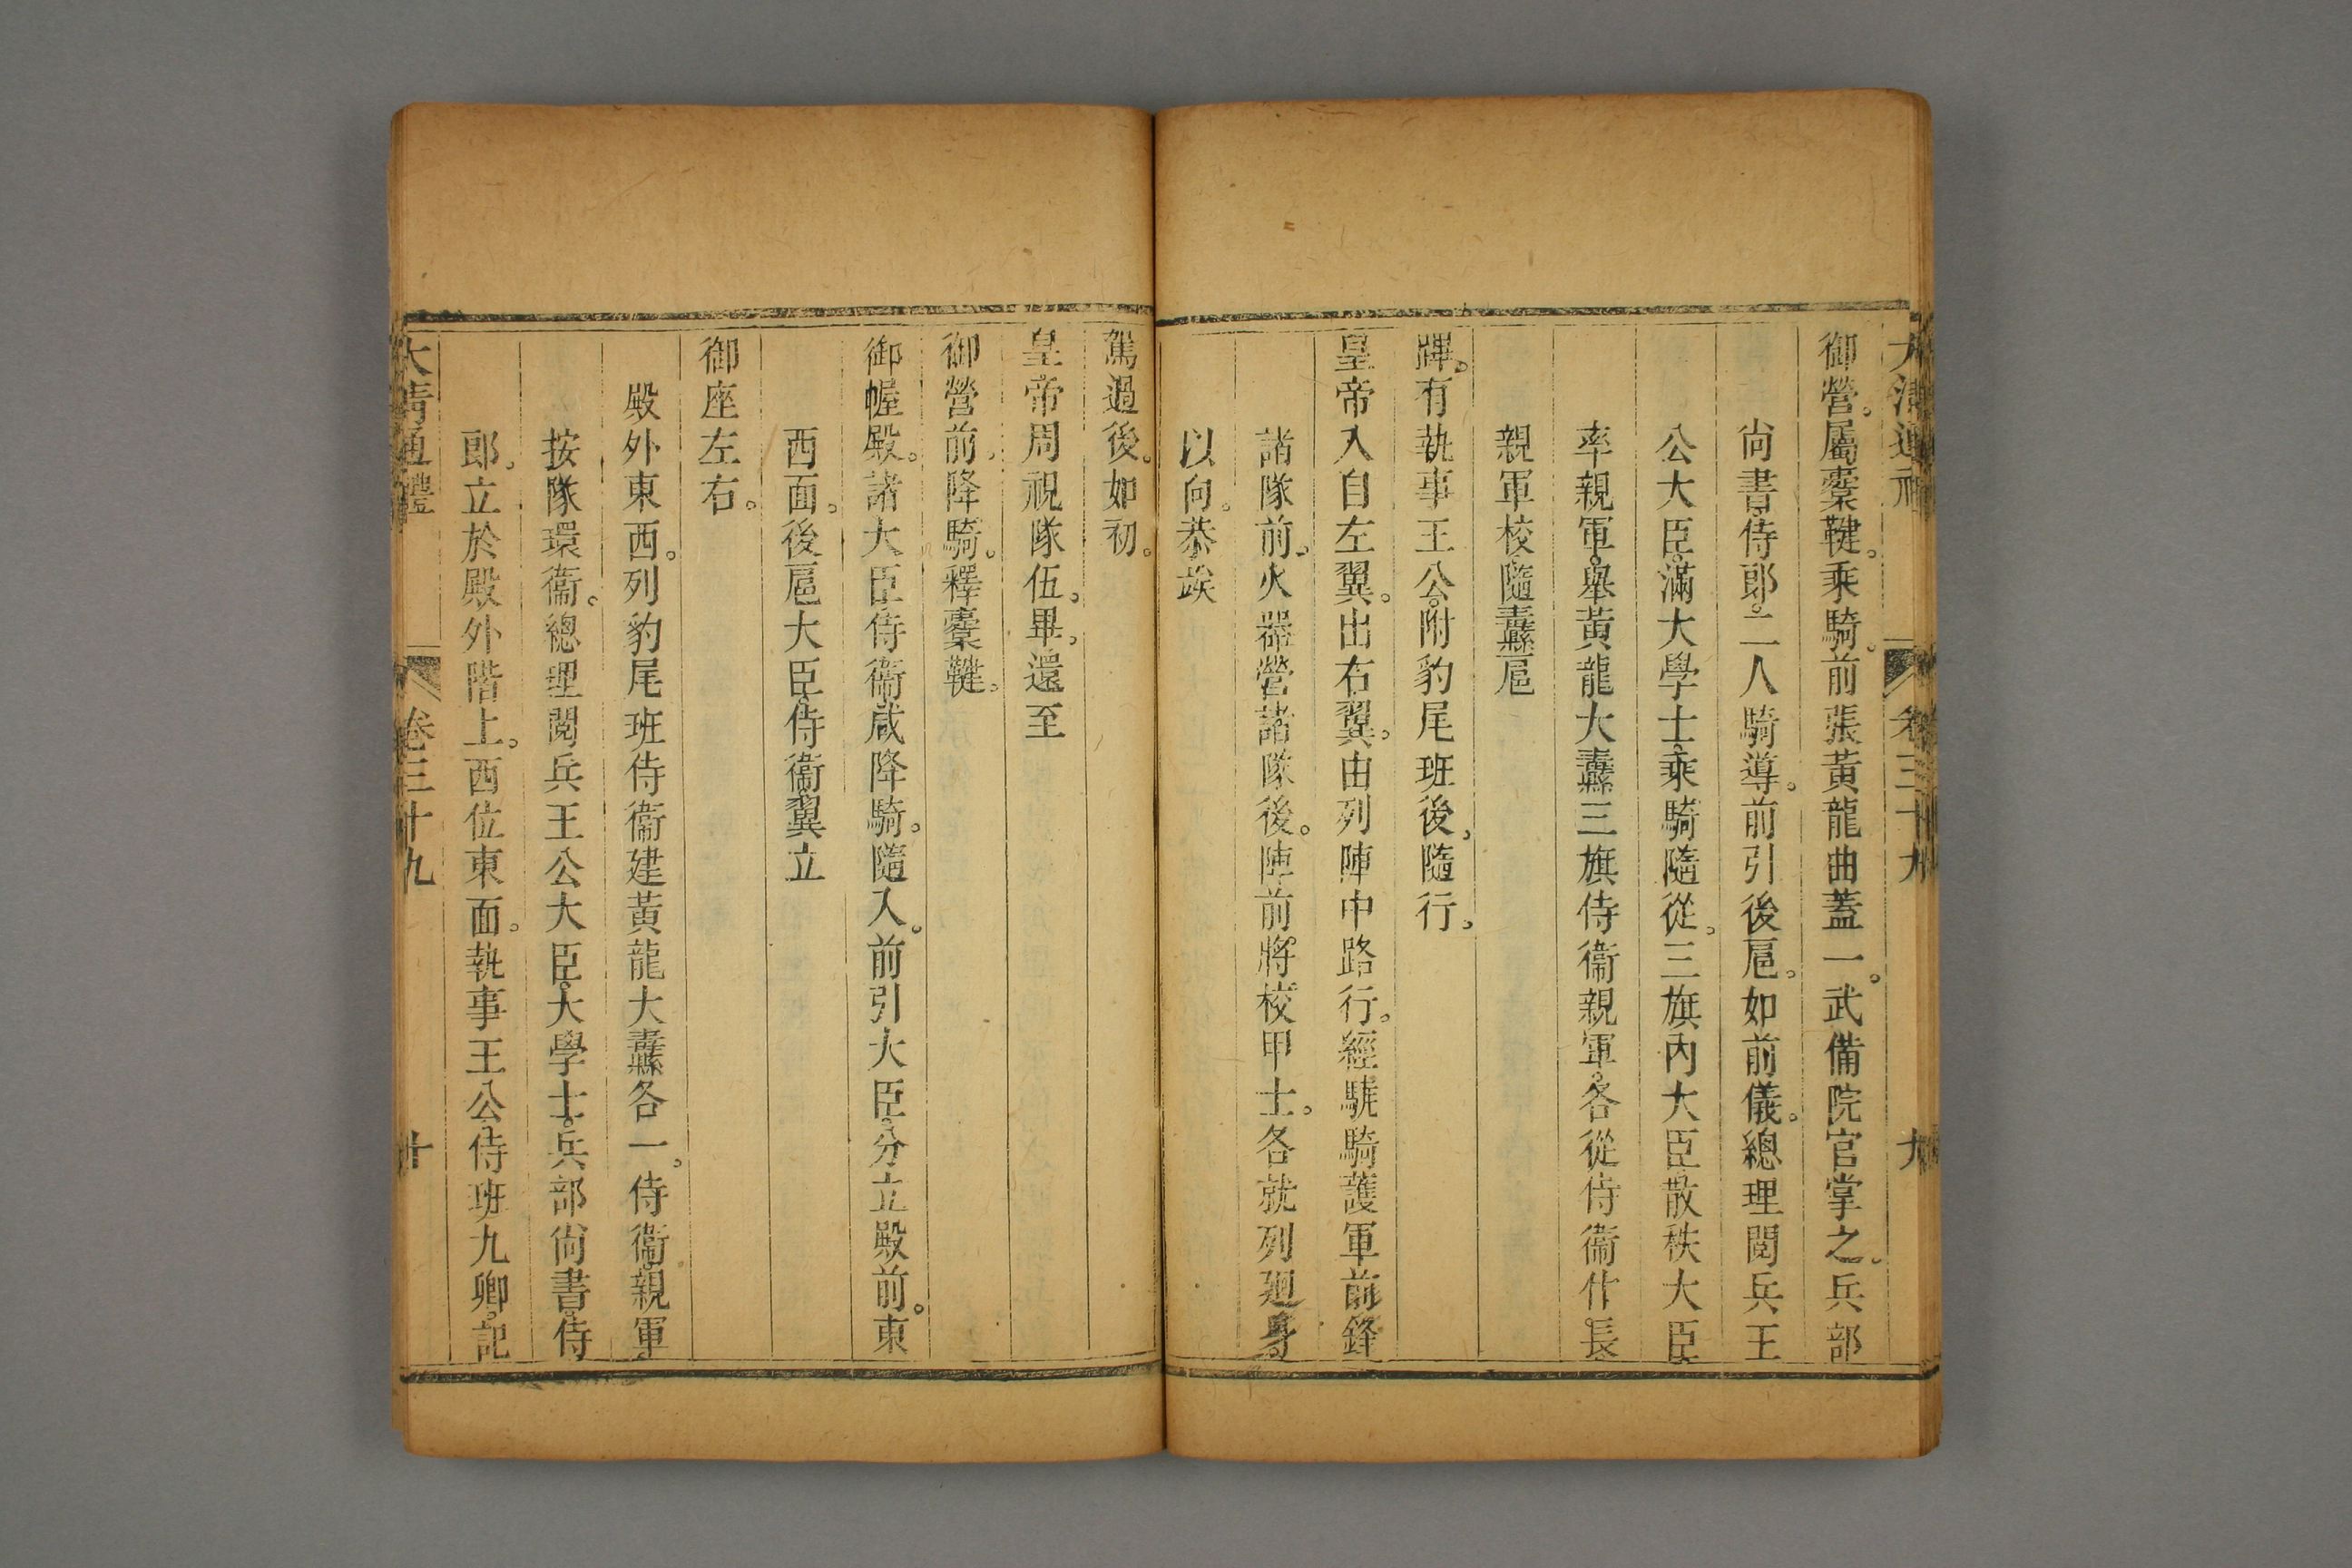 大清通禮 卷三十九 九
御營。屬櫜鞬。乘騎。前張黃龍曲蓋一。武備院官掌之。兵部
尙書。侍郎。二人騎導。前引後扈。如前儀。總理閱兵王
公大臣。滿大學士。乘騎隨從。三旗內大臣散秩大臣
率親軍。舉黃龍大纛三旗侍衞親軍。各從侍衞什長。
親軍校。隨纛扈
蹕。有執事王公。附豹尾班後。隨行。
皇帝入自左翼。出右翼。由列陣中路行。經驍騎護軍前鋒
諸隊前。火器營諸隊後。陣前將校甲士。各就列廻身
以向。恭竢
駕過後。如初。
皇帝周視隊伍。畢。還至
御營前。降騎。釋櫜鞬。
御幄殿。諸大臣侍衞咸降騎。隨入。前引大臣。分立殿前。東
西面。後扈大臣。侍衞。翼立
御座左右。
殿外東西。列豹尾班侍衞建黃龍大纛各一。侍衞。親軍。
按隊環衞。總理閱兵王公大臣。大學士。兵部尙書。侍
郎。立於殿外階上。西位東面。執事王公。侍班九卿。記
大清通禮 卷三十九 十